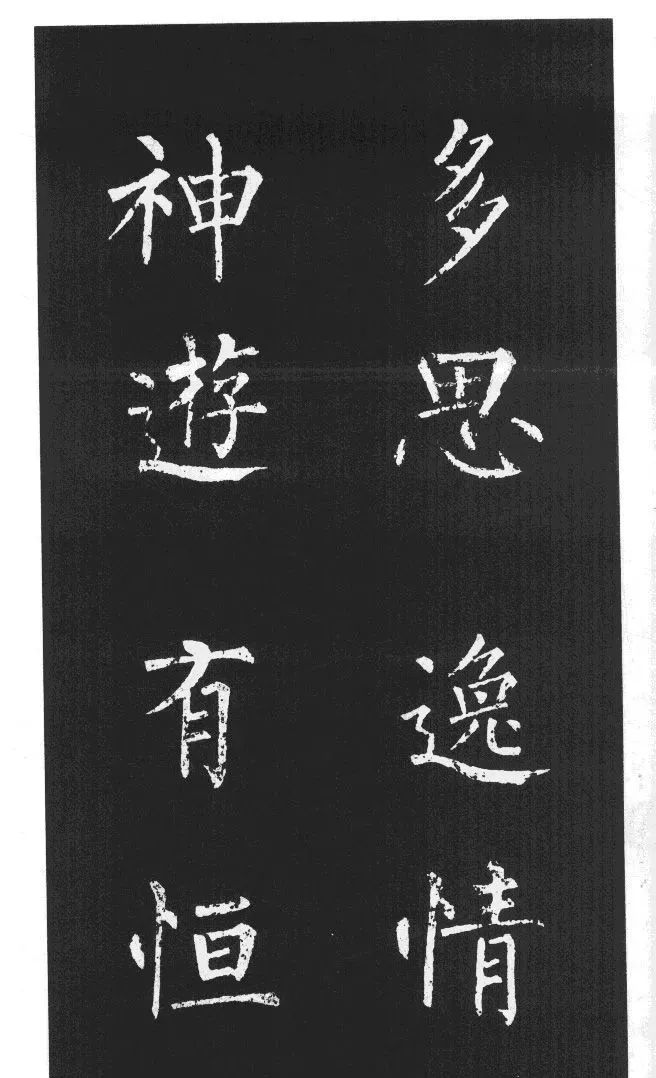 多思逸情
神遊有恒